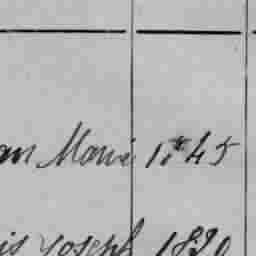 an Marie 1845
is Joseph 1820